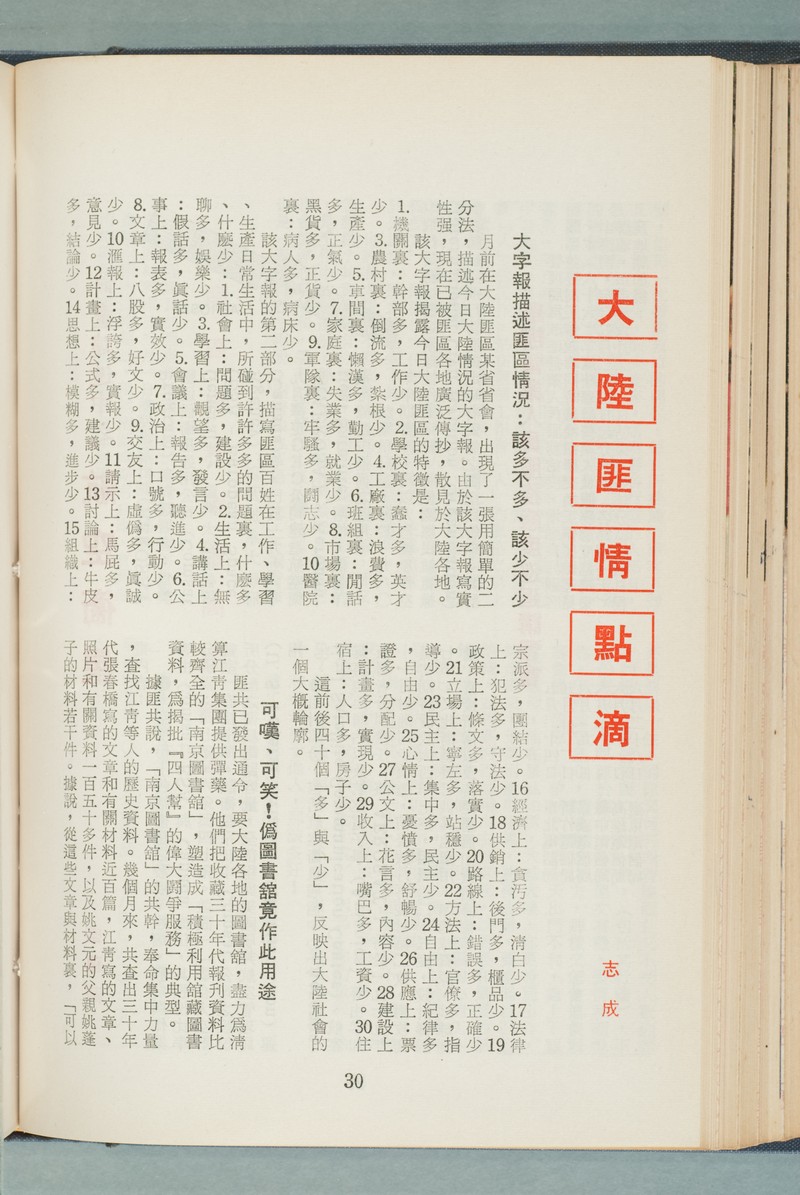 大陸匪情點滴
志成
大字報描述匪區情況：該多不多、該少不少
月前在大陸匪區某省省會，出現了一張用簡單的二
分法，描述今日大陸情況的大字報。由於該大字報寫實
性强，現在已被匪區各地廣泛傳抄，散見於大陸各地。
該大字報揭露今日大陸匪區的特徵是：
1.機關裏：幹部多，工作少。2.學校裏：蠢才多，英才
少。3.農村裏：倒流多，紮根少。4.工廠裏：浪費多，
生產少。5.車間裏：懶漢多，勤工少。6.班組裏：閒話
多，正氣少。7.家庭裏：失業多，就業少。8.市場裏：
黑貨多，正貨少。9.軍隊裏：牢騷多，鬪志少。10醫院
裏：病人多，病床少。
該大字報的第二部分，描寫匪區百姓在工作、學習
、生產日常生活中，所碰到許許多多的問題裏，什麽多
、什麽少：1.社會上：問題多，建設少。2.生活上：無
聊多，娛樂少。3.學習上：觀望多，發言少。4.講話上
：假話多，眞話少。5.會議上：報告多，聽進少。6.公
事上：報表多，實效少。7.政治上：口號多，行動少。
8.文章上：八股多，好文少。9.交友上：虛僞多，眞誠
少。10滙報上：浮誇多，實報少。11請示上：馬屁多，
意見少。12計畫上：公式多，建議少。13討論上：牛皮
多，結論少。14思想上：模糊多，進步少。15組織上：
宗派多，團結少。16經濟上：貪汚多，淸白少。17法律
上：犯法多，守法少。18供銷上：後門多，櫃品少。19
政策上：條文多，落實少。20路線上：錯誤多，正確少
。21立場上：寧左多，站穩少。22方法上：官僚多，指
導少。23民主上：集中多，民主少。24自由上：紀律多
，自由少。25心情上：憂憤多，舒暢少。26供應上：票
證多，分配少。27公文上：花言多，內容少。28建設上
：計畫多，實現少。29收入上：嘴巴多，工資少。30住
宿上：人口多，房子少。
這前後四十個「多」與「少」，反映出大陸社會的
一個大概輪廓。
可嘆、可笑！僞圖書舘竟作此用途
匪共已發出通令，要大陸各地的圖書舘，盡力爲淸
算江靑集團提供彈藥。他們把收藏三十年代報刋資料比
較齊全的「南京圖書舘」，塑造成「積極利用舘藏圖書
資料，爲揭批『四人幫』的偉大鬪爭服務」的典型。
據匪共說，「南京圖書舘」的共幹，奉命集中力量
，查找江靑等人的歷史資料。幾個月來，共查出三十年
代張春橋寫的文章和有關材料近百篇，江靑寫的文章、
照片和有關資料一百五十多件，以及姚文元的父親姚蓬
子的材料若干件。據說，從這些文章與材料裏，「可以
30